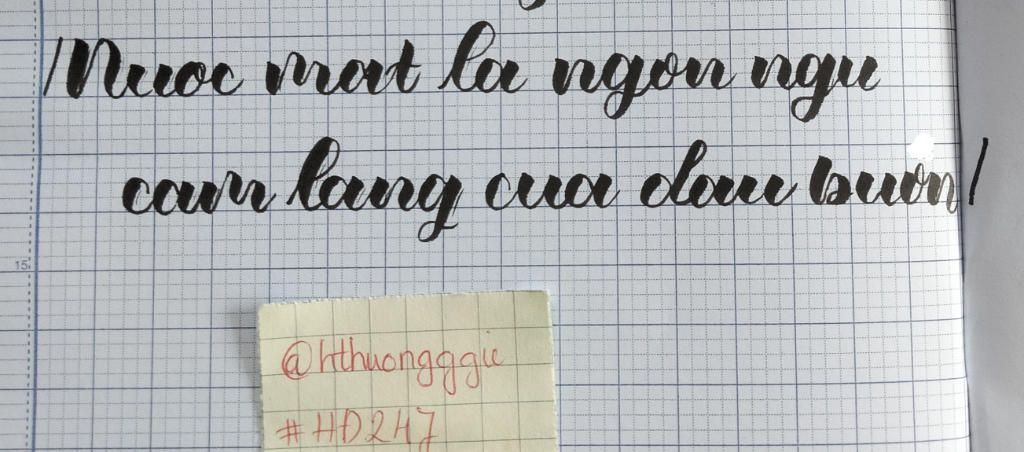 /Nuoc mat la ngon ngu
cam lang cua dau buon/
15
@hthuongggie
#HD247